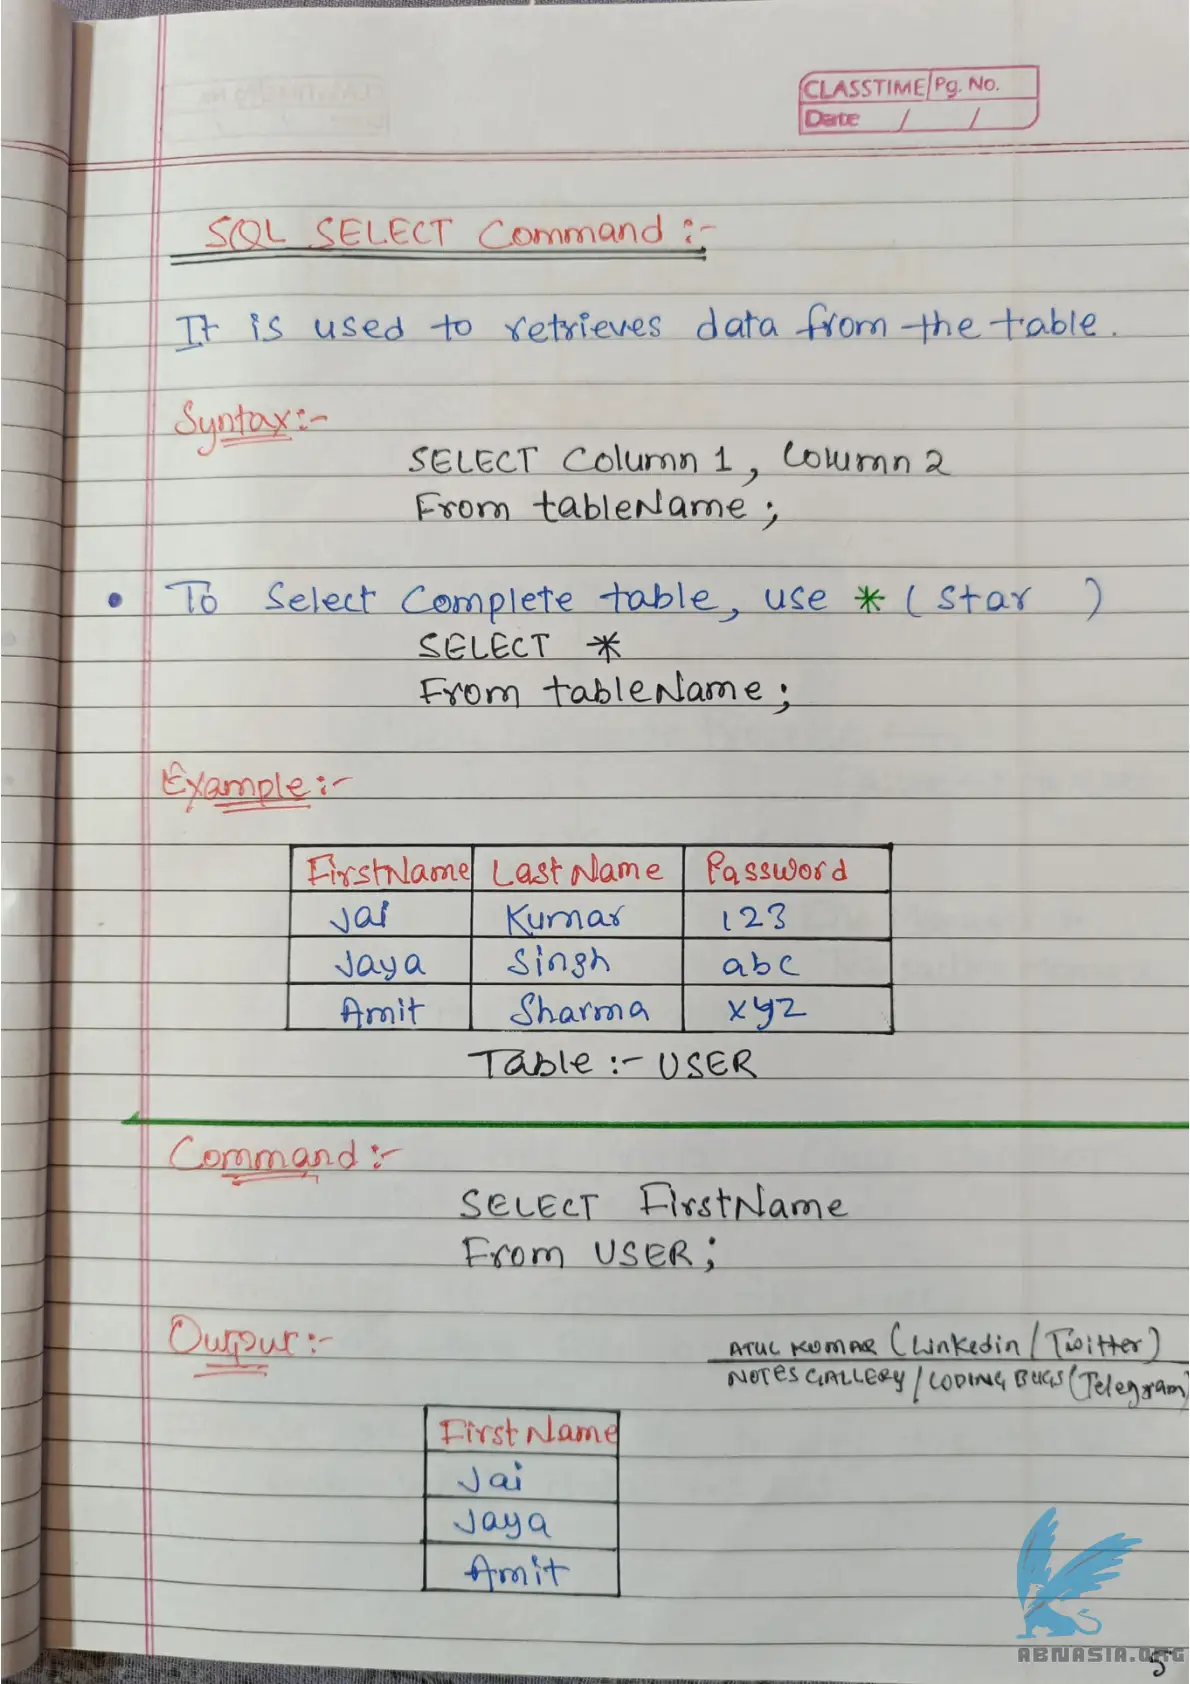 CLASSTIME Pg. No.
Date / /
SQL SELECT Command :-
It is used to retrieves data from the table.
Syntax :-
SELECT Column 1, Column 2
From tableName ;
• To Select Complete table, use * ( Star )
SELECT *
From tableName ;
Example :-
FirstName Last Name Password
Jai Kumar 123
Jaya Singh abc
Amit Sharma xyz
Table :- USER
Command :-
SELECT FirstName
From USER ;
Output :-
ATUL KUMAR (Linkedin / Twitter)
NOTES GALLERY / CODING BUGS (Telegram)
First Name
Jai
Jaya
Amit
ABNASIA.ORG
5